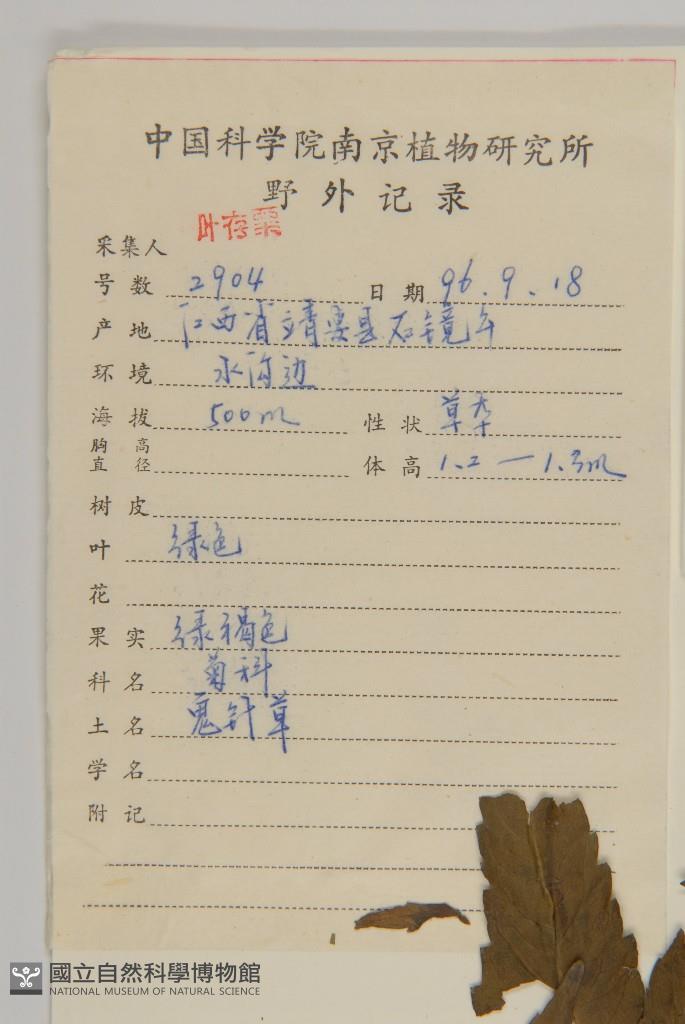 中国科学院南京植物研究所
野外记录
采集人 叶存粟
号数 2904 日期 96.9.18
产地 江西省靖安县石镜乡
环境 水沟边
海拔 500m 性状 草本
胸高直径 体高 1.2—1.3m
树皮
叶 绿色
花
果实 绿褐色
科名 菊科
土名 鬼针草
学名
附记
國立自然科學博物館
NATIONAL MUSEUM OF NATURAL SCIENCE